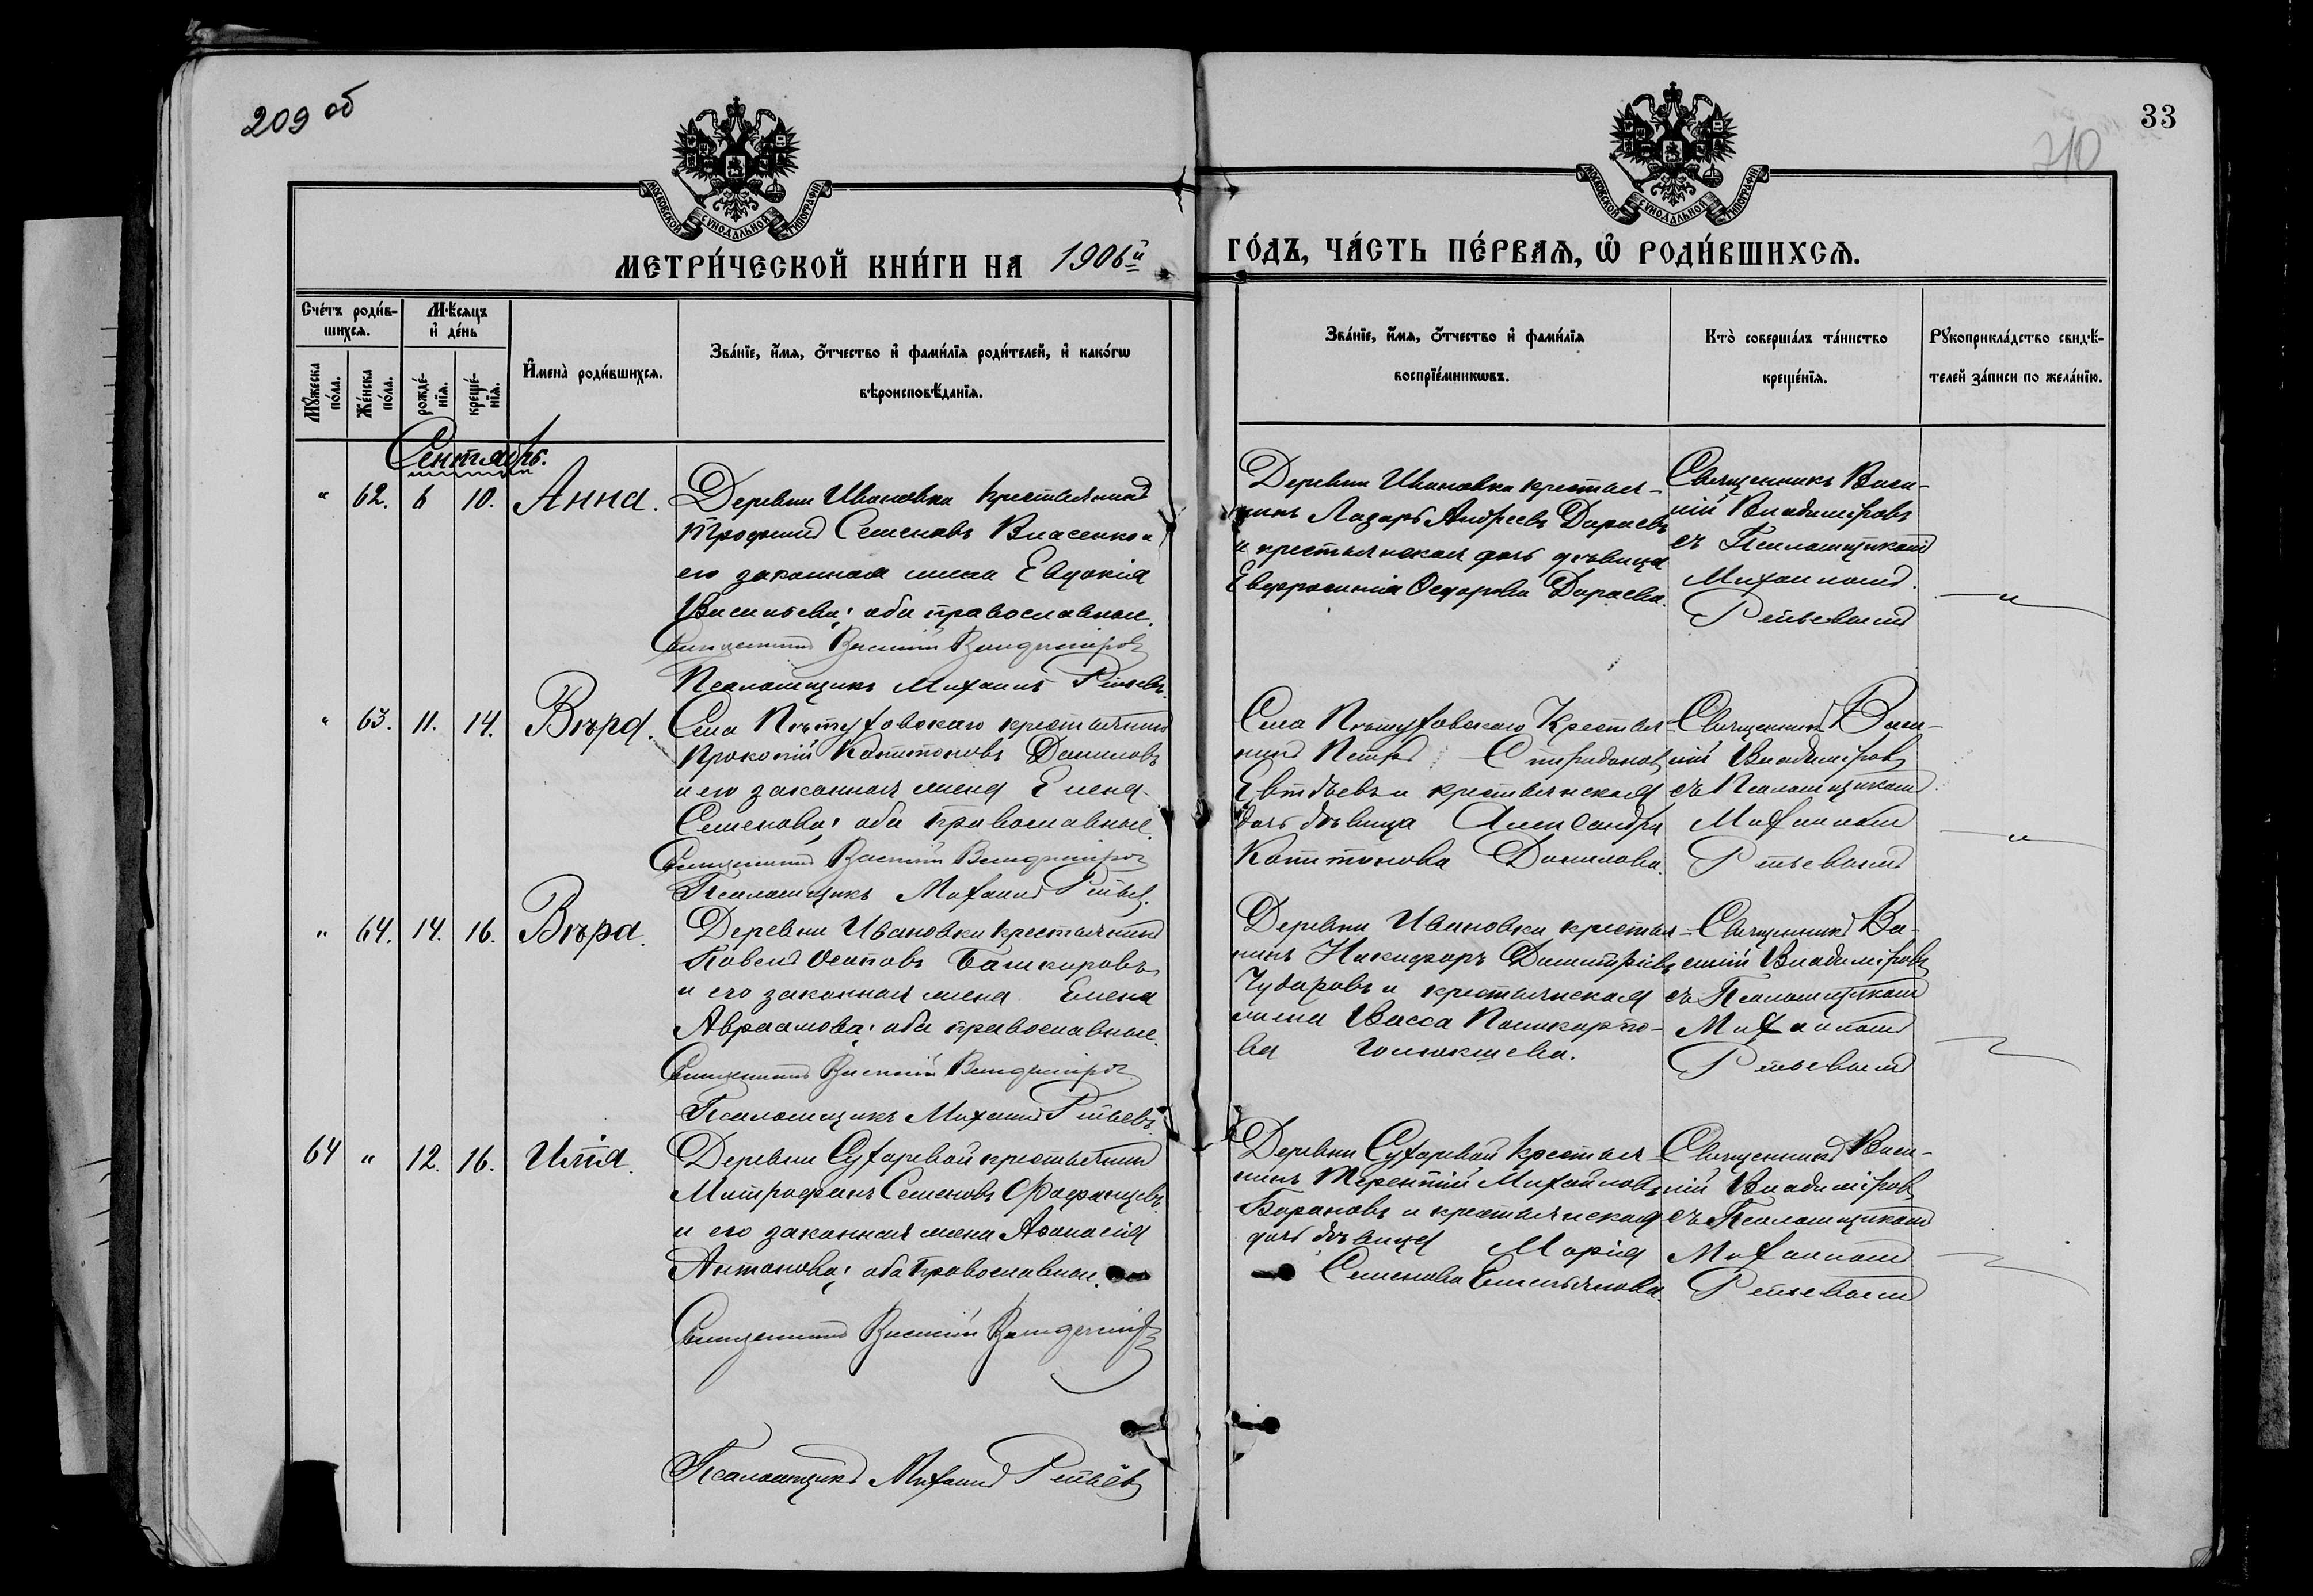 209 об
33
210
МОСКОВСКОЙ СУНОДАЛЬНОЙ ТИПОГРАФІИ
МОСКОВСКОЙ СУНОДАЛЬНОЙ ТИПОГРАФІИ
МЕТРИ́ЧЕСКОЙ КНИ́ГИ НА 1906й
ГО́ДЪ, ЧА́СТЬ ПЕ́РВАѦ, Ѡ РОДИ́ВШИХСѦ.
Сче́тъ роди́в-
шихсѧ.
Мꙋ́жеска по́ла.
Же́нска по́ла.
Мѣ́сѧцъ
и҆ де́нь
рожде́-
нїѧ.
креще́-
нїѧ.
И҆мена̀ роди́вшихсѧ.
Зва́нїе, и҆́мѧ, ѻ҆́тчество и҆ фами́лїѧ роди́телей, и҆ како́гѡ
вѣроисповѣ́данїѧ.
Зва́нїе, и҆́мѧ, ѻ҆́тчество и҆ фами́лїѧ
воспрїе́мникѡвъ.
Кто̀ соверша́лъ та́инство
креще́нїѧ.
Рꙋкоприкла́дство свидѣ́-
телей за́писи по жела́нїю.
Сентябрь.
" 62. 6 10. Анна.
Деревни Ивановки крестьянинъ
Трофимъ Семеновъ Власенко и
его законная жена Евдокія
Васильева; оба православные.
Священникъ Василій Владиміровъ
Псаломщикъ Михаилъ Рѣпьевъ.
Деревни Ивановки крестья-
нинъ Лазарь Андреевъ Дараевъ
и крестьянская дочь дѣвица
Евфросинія Ѳедорова Дараева.
Священникъ Васи-
лій Владиміровъ
съ Псаломщикомъ
Михаиломъ
Рѣпьевымъ
"
" 63. 11. 14. Вѣра.
Села Пѣтуховскаго крестьянинъ
Прокопій Капитоновъ Даниловъ
и его законная жена Елена
Семенова; оба православные.
Священникъ Василій Владиміровъ
Псаломщикъ Михаилъ Рѣпьевъ.
Села Пѣтуховскаго крестья-
нинъ Петръ Спиридоновъ
Евтѣевъ и крестьянская
дочь дѣвица Александра
Капитонова Данилова.
Священникъ Васи-
лій Владиміровъ
съ Псаломщикомъ
Михаиломъ
Рѣпьевымъ
"
" 64. 14. 16. Вѣра.
Деревни Ивановки крестьянинъ
Павелъ Осиповъ Башкировъ
и его законная жена Елена
Авраамова; оба православные.
Священникъ Василій Владиміровъ
Псаломщикъ Михаилъ Рѣпьевъ.
Деревни Ивановки крестья-
нинъ Никифоръ Димитріевъ
Чударовъ и крестьянская
жена Васса Поликарпо-
ва
Священникъ Ва-
силій Владиміровъ
съ Псаломщикомъ
Михаиломъ
Рѣпьевымъ
64 " 12. 16. Илія.
Деревни Сухаревой крестьянинъ
Митрофанъ Семеновъ
и его законная жена Аѳанасія
Антонова; оба православные.
Священникъ Василій Владиміровъ
Псаломщикъ Михаилъ Рѣпьевъ
Деревни Сухаревой крестья-
нинъ Терентій Михайловъ
Барановъ и крестьянская
дочь дѣвица Марія
Семенова Емельянова.
Священникъ Васи-
лій Владиміровъ
съ Псаломщикомъ
Михаиломъ
Рѣпьевымъ